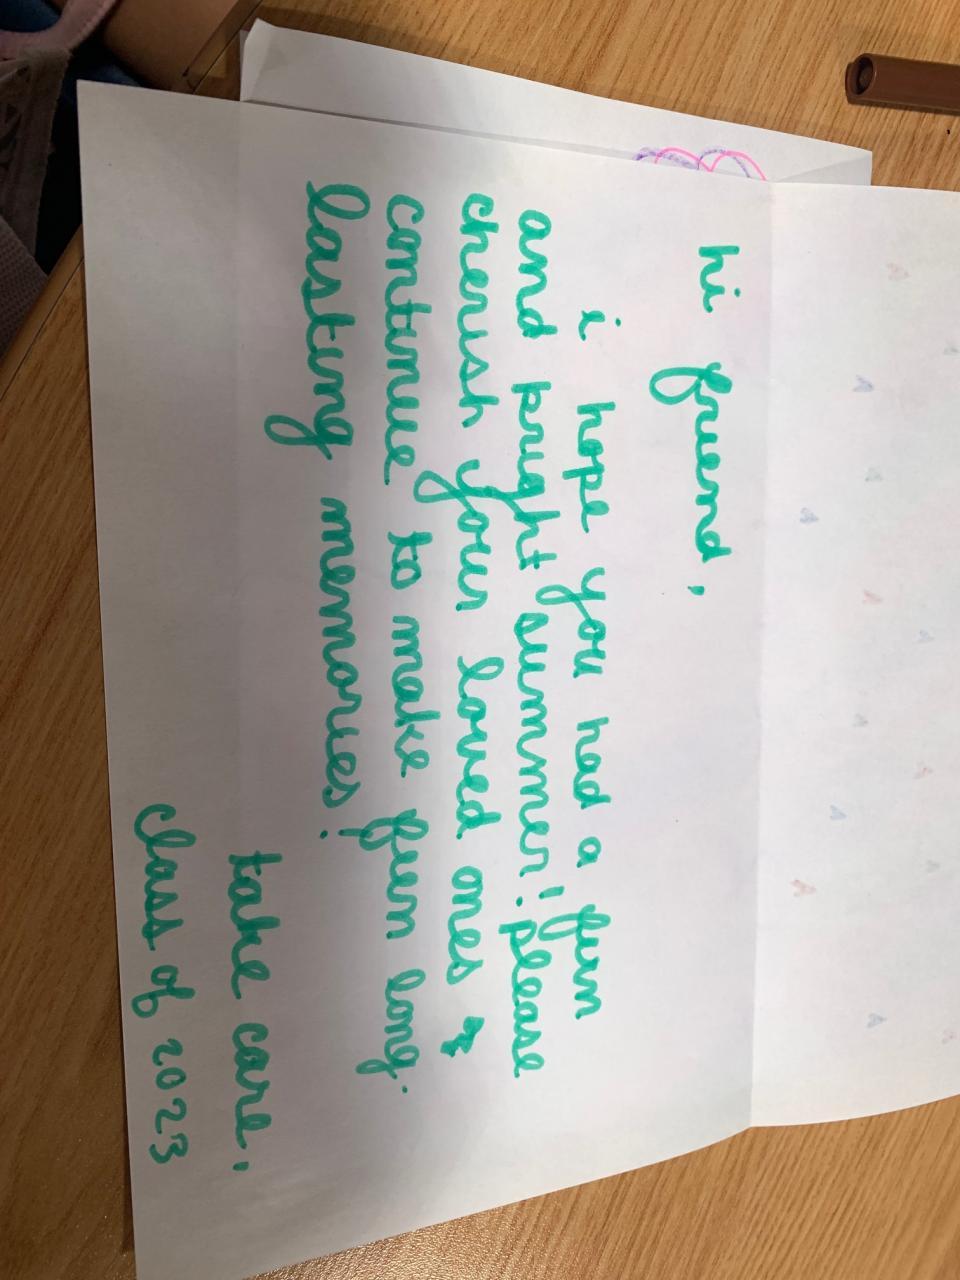 hi friend,
i hope you had a fun
and bright summer! please
cherish your loved ones &
continue to make fun long-
lasting memories!
take care,
class of 2023